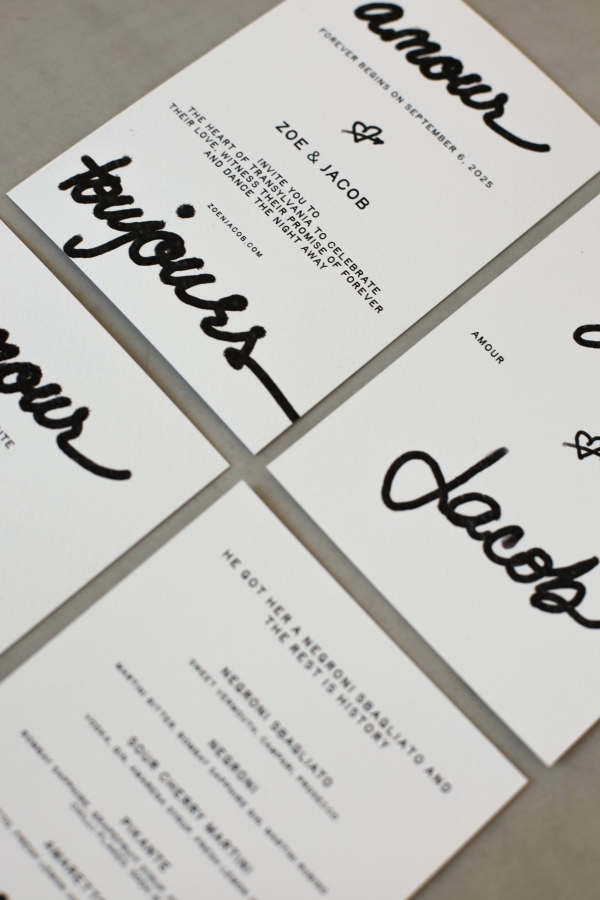 amour
FOREVER BEGINS ON SEPTEMBER 6, 2025
ZOE & JACOB
INVITE YOU TO
THE HEART OF TRANSYLVANIA TO CELEBRATE
THEIR LOVE, WITNESS THEIR PROMISE OF FOREVER
AND DANCE THE NIGHT AWAY
ZOENJACOB.COM
toujours
AMOUR
Jacob
HE GOT HER A NEGRONI SBAGLIATO AND
THE REST IS HISTORY
NEGRONI SBAGLIATO
SWEET VERMOUTH, CAMPARI, PROSECCO
NEGRONI
MARTINI BITTER, BOMBAY SAPPHIRE GIN, MARTINI RUBINO
SOUR CHERRY MARTINI
PIKANTE